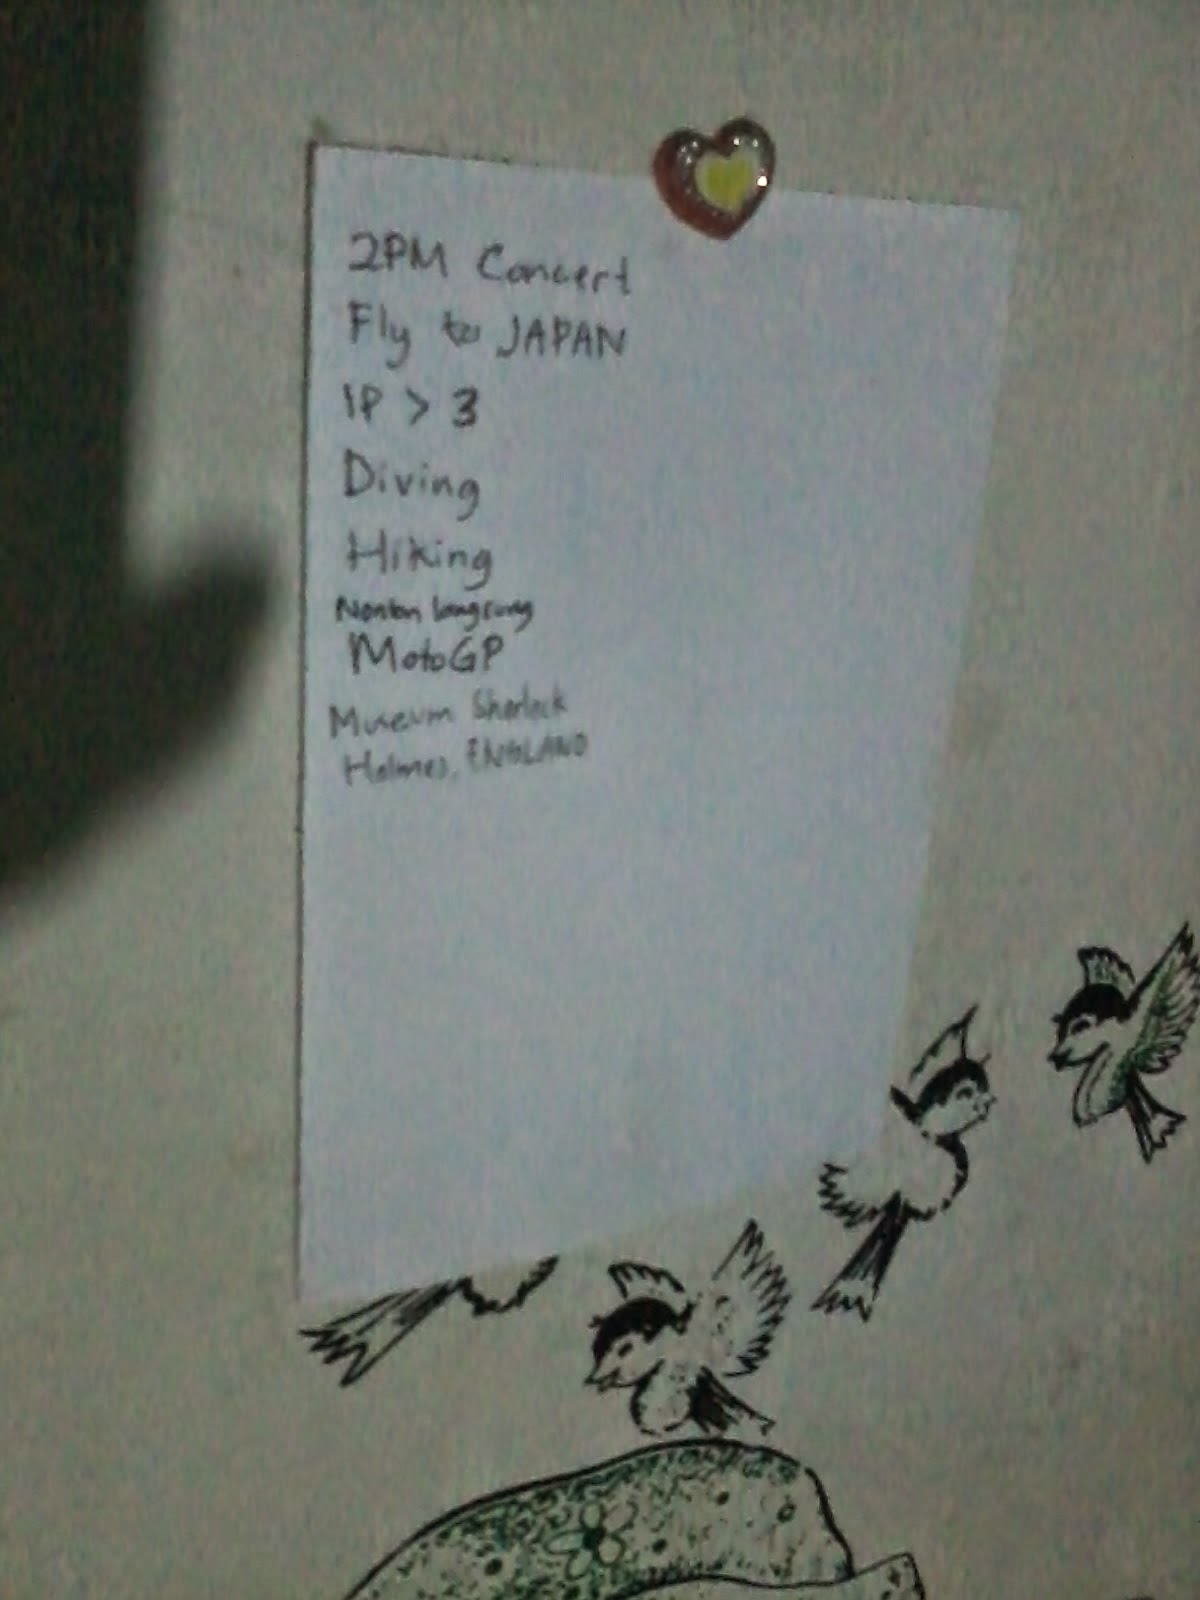 2PM Concert
Fly to JAPAN
IP > 3
Diving
Hiking
Nonton langsung
MotoGP
Museum Sherlock
Holmes, ENGLAND